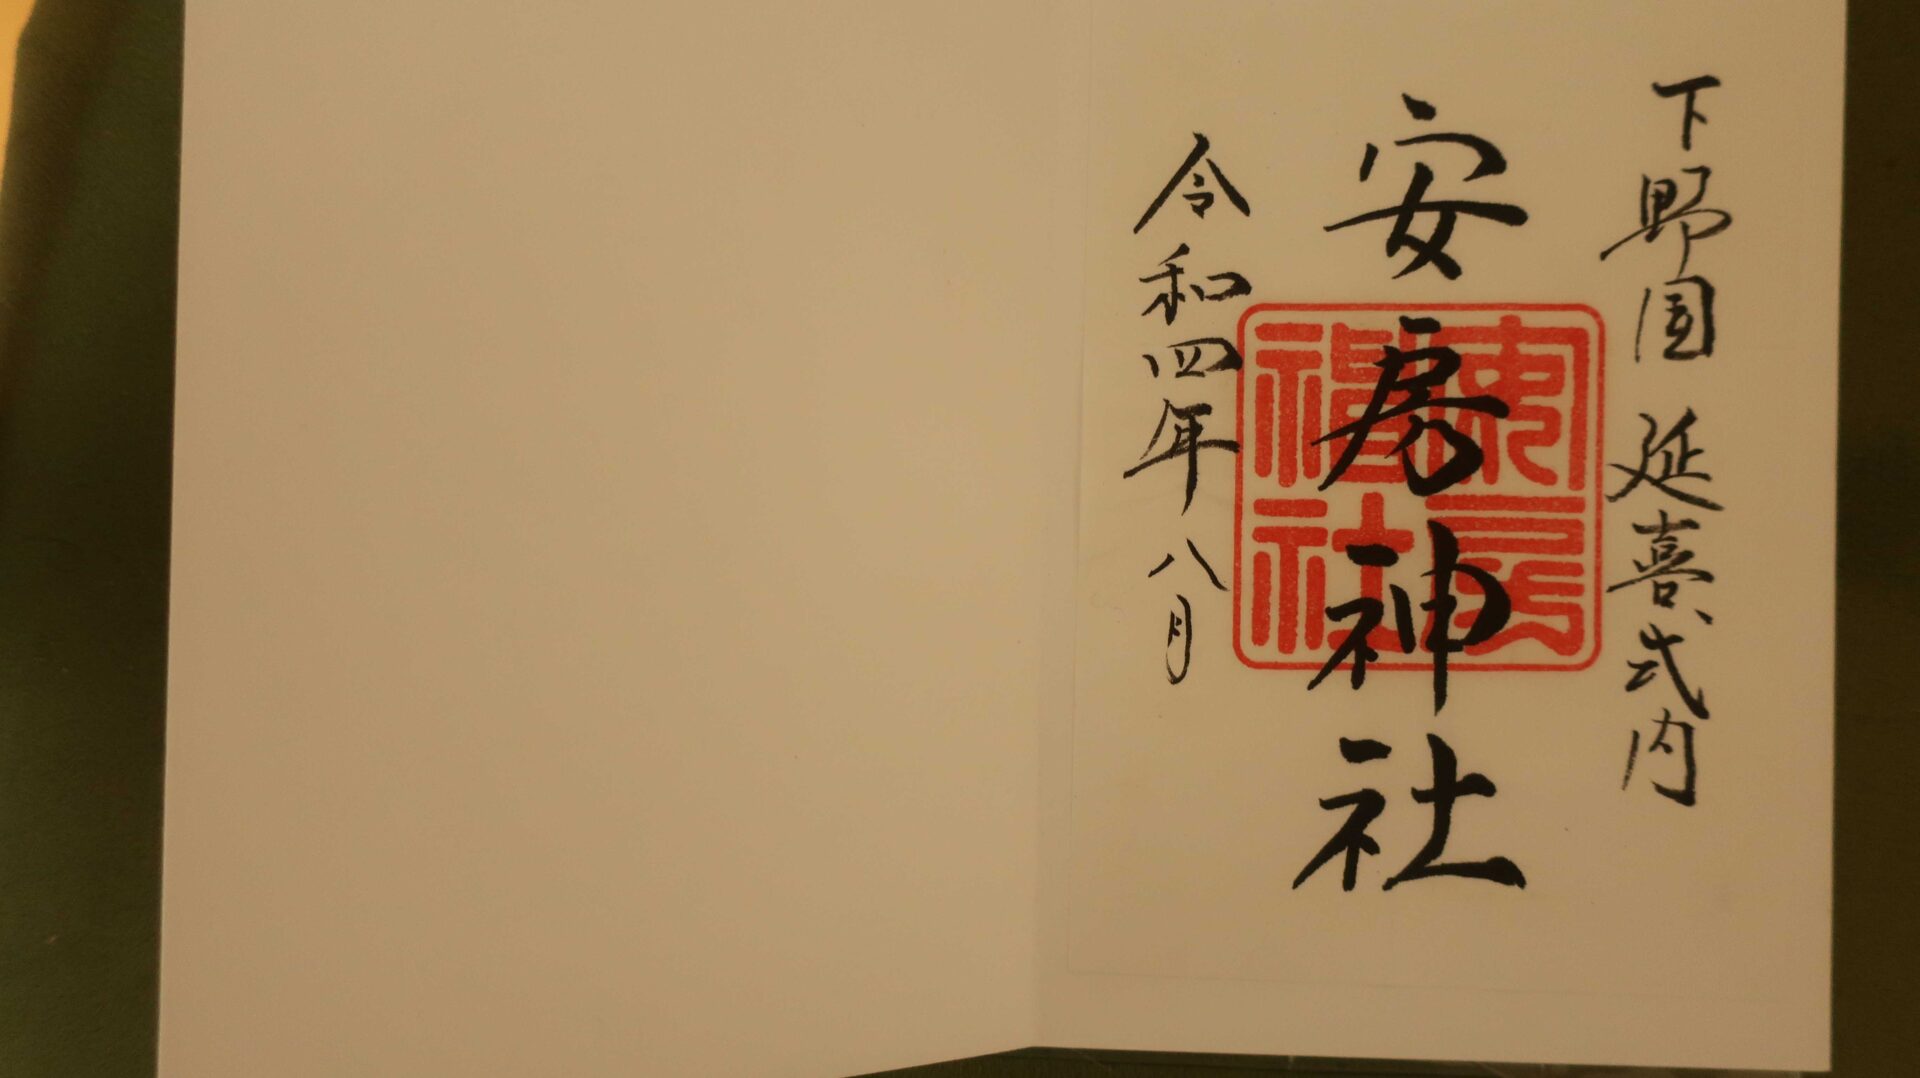 下野国 延喜式内
安房神社
安房神社
令和四年八月